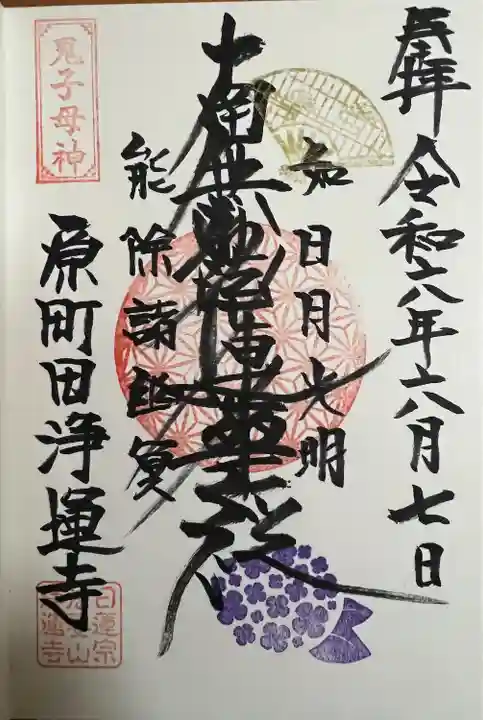 奉拝
令和六年六月七日
如日月光明
南無妙法蓮華経
能除諸幽冥
鬼子母神
原町田浄運寺